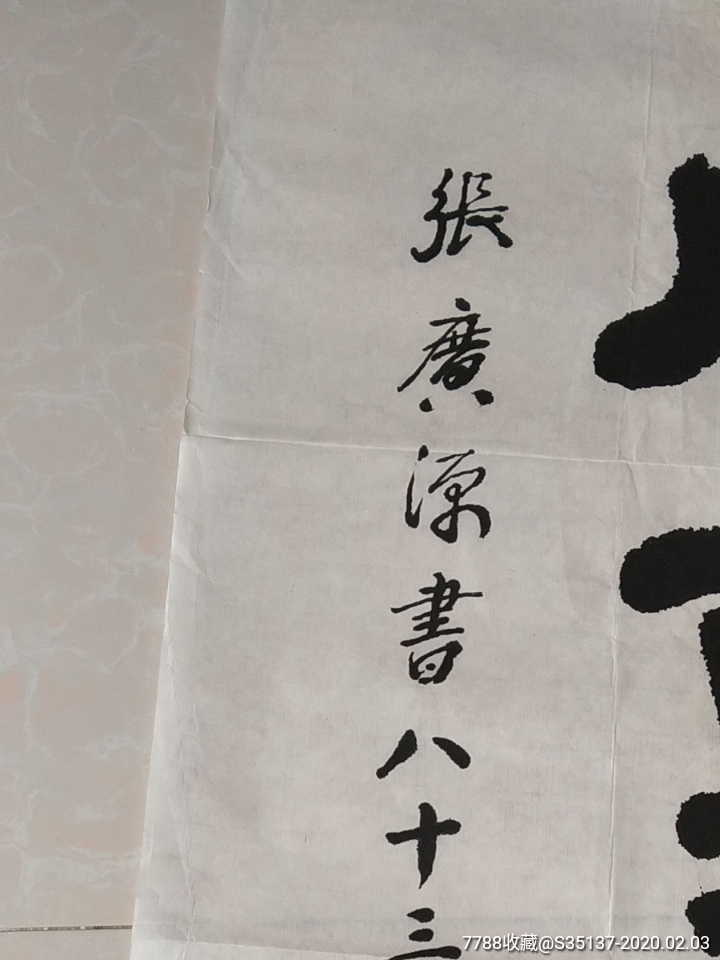 張廣源書八十三
7788收藏@S35137-2020.02.03